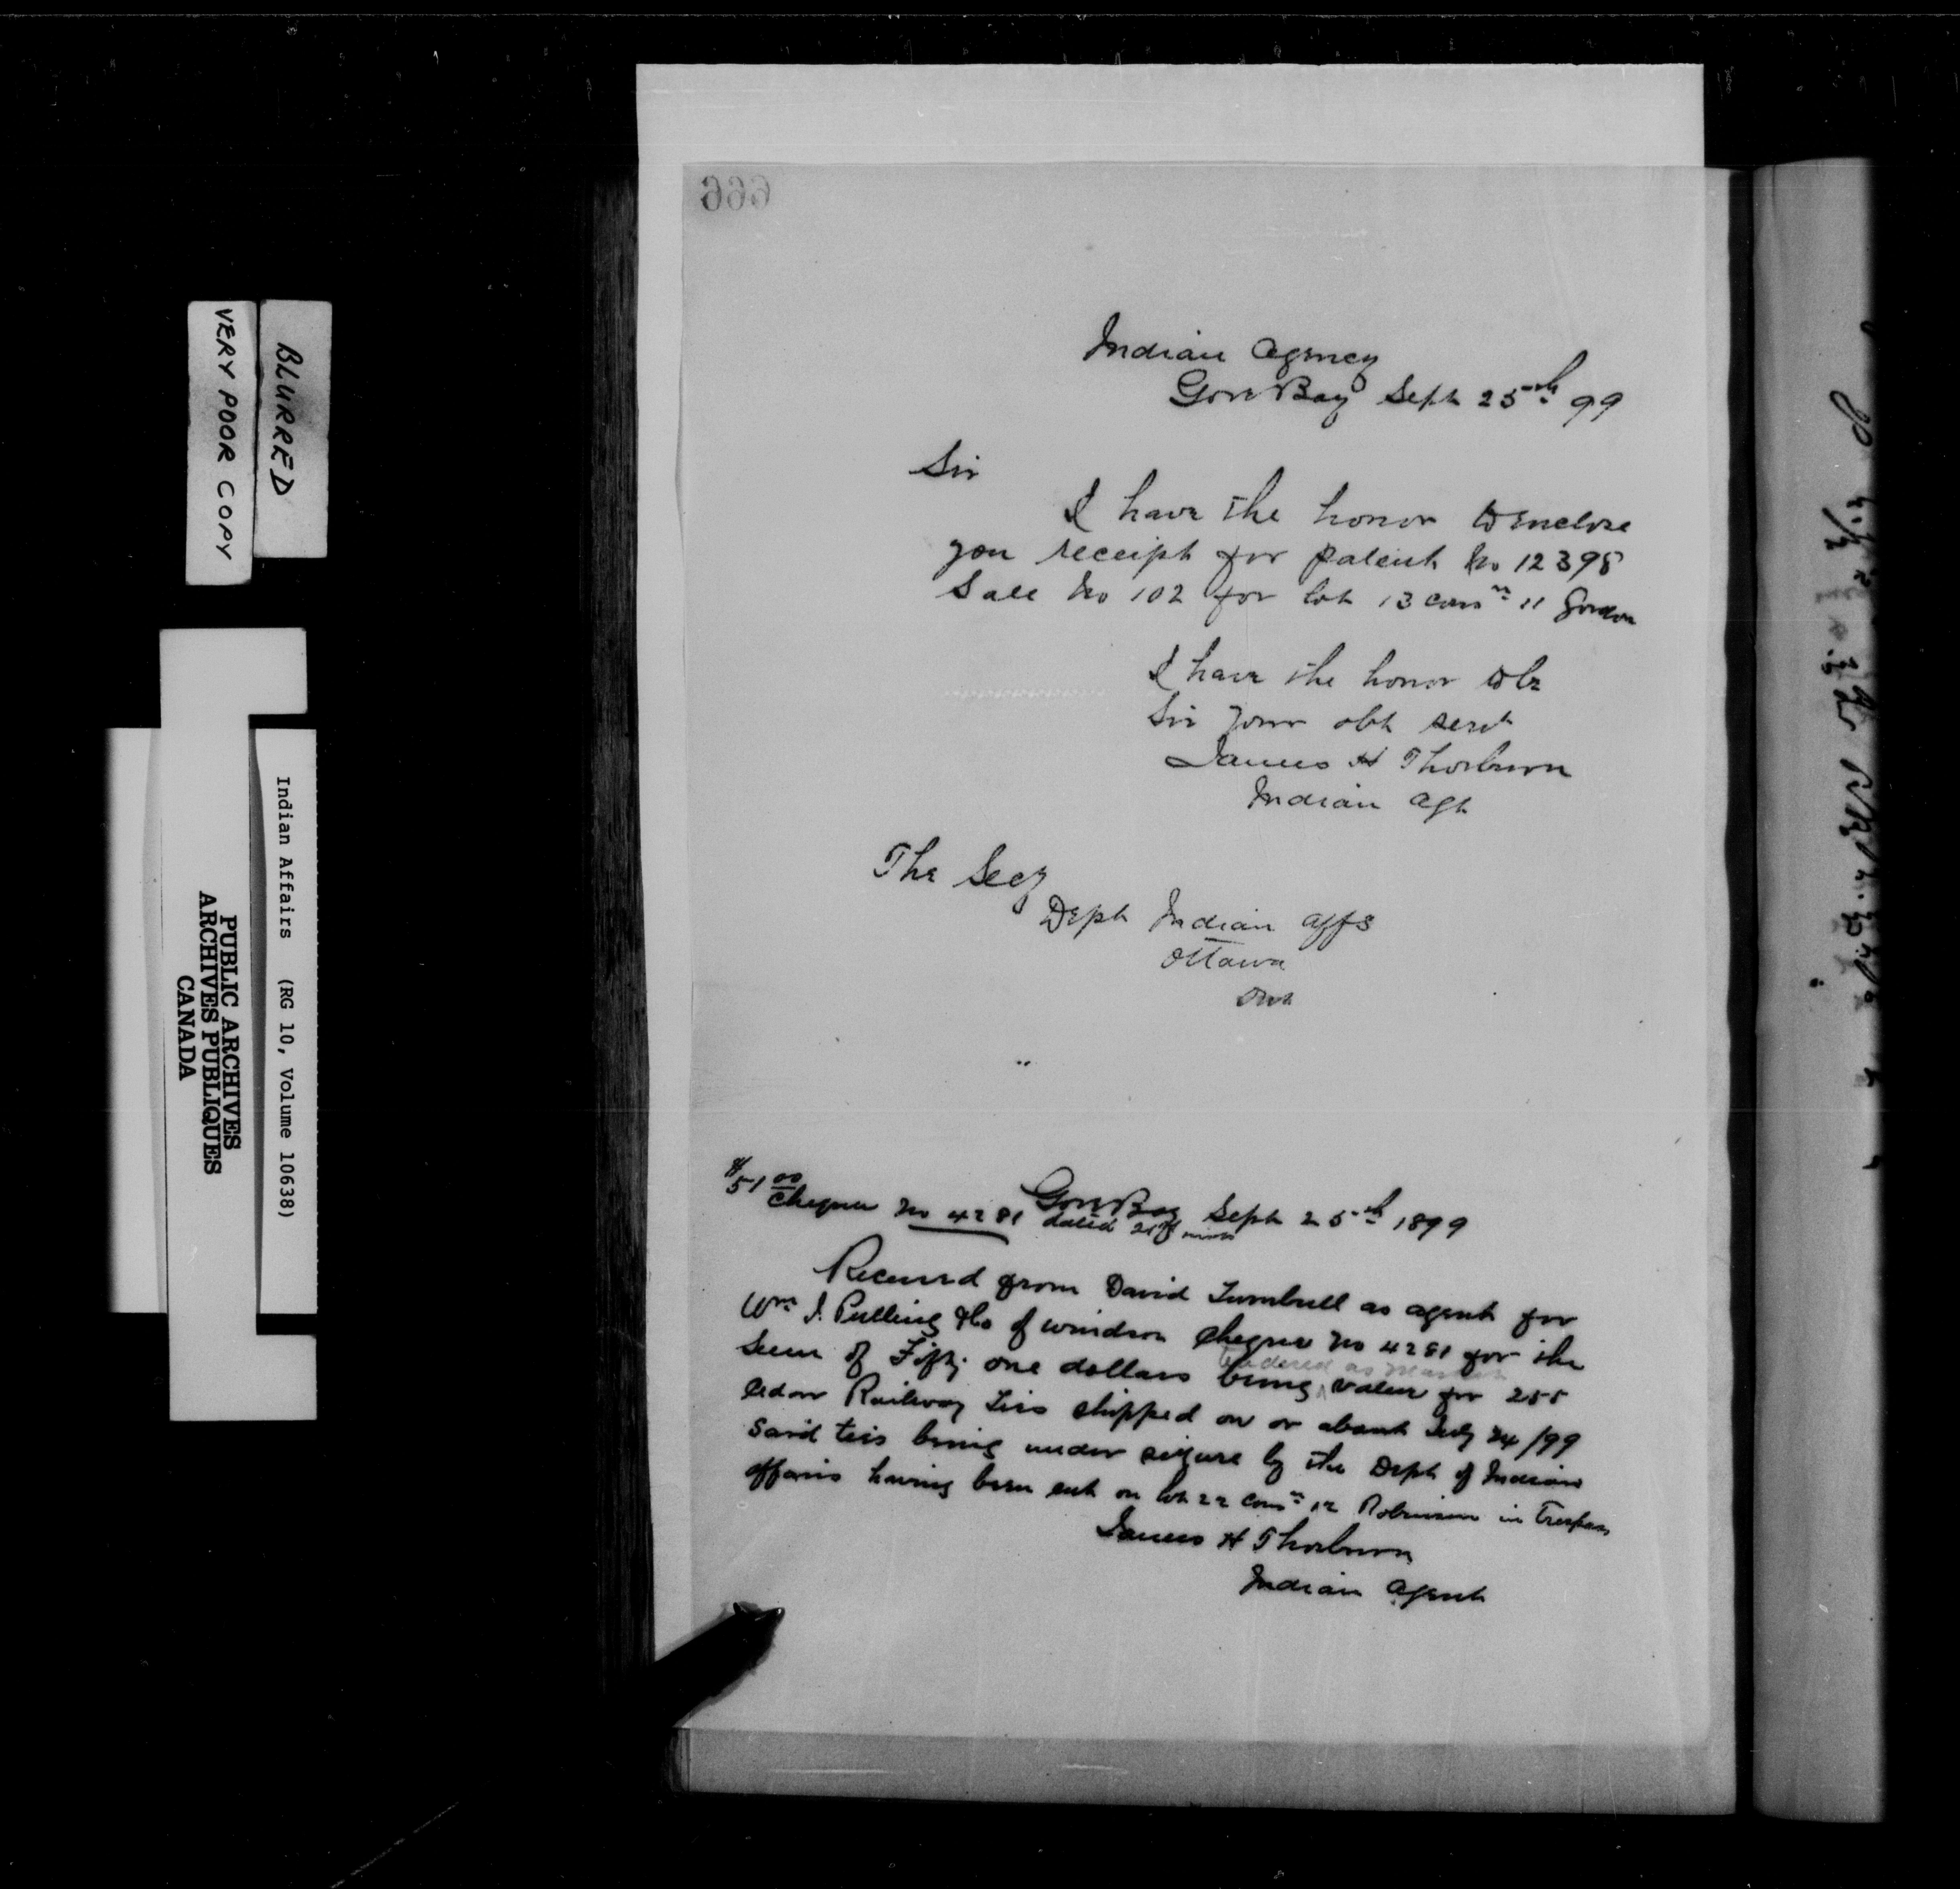 BLURRED
VERY POOR COPY
Indian Affairs (RG 10, Volume 10638)
PUBLIC ARCHIVES
ARCHIVES PUBLIQUES
CANADA
666
Indian Agency
Gore Bay Sept 25th 99
Sir
I have the honor to enclose
you receipt for patent No 12398
Sale No 102 for lot 13 conn 11 Gordon
I have the honor to be
Sir your obt servt
James H Thorburn
Indian Agt
The Secy
Dept Indian Affs
Ottawa
Ont
$51 00
Gore Bay Sept 25th 1899
Cheque No 4281 dated 21st
Received from David Turnbull as agent for
Wm J. Pulling &Co of Windsor Cheque No 4281 for the
Sum of Fifty one dollars being tendered as value for 255
Cedar Railway Ties shipped on or about July 24/99
Said ties being under seizure by the Dept of Indian
Affairs having been cut on lot 22 conn 12 Robinson in Trespass
James H Thorburn
Indian Agent